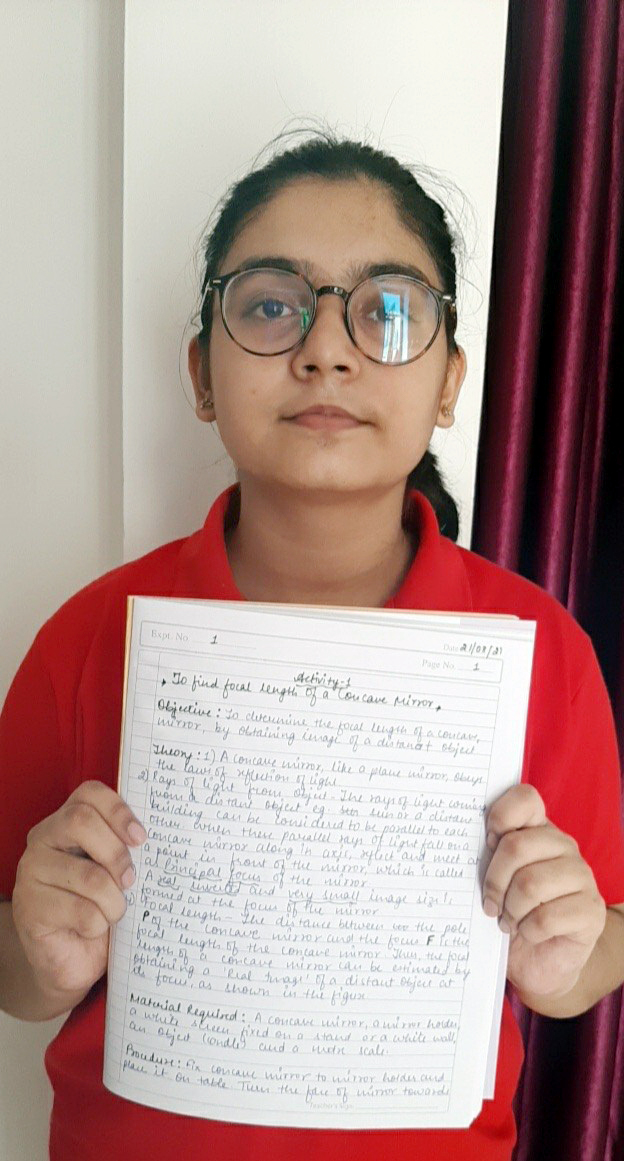 Expt. No. 1
Date 21/08/21
Page No. 1
Activity-1
To find focal length of a Concave Mirror.
Objective: To determine the focal length of a concave
mirror, by obtaining image of a distant object
Theory: 1) A concave mirror, like a plane mirror, obeys
the laws of reflection of light.
2) Rays of light from object - The rays of light coming
from a distant object eg sun or a distant
building can be considered to be parallel to each
other. when these parallel rays of light fall on a
concave mirror along its axis, reflect and meet at
a point in front of the mirror, which is called
as Principal focus of the mirror
A real, inverted and very small image size is
formed at the focus of the mirror
Focal length - The distance between the pole
P of the concave mirror and the focus F is the
focal length of the concave mirror. Thus, the focal
length of a concave mirror can be estimated by
obtaining a 'Real Image' of a distant object at
its focus, as shown in the figure
Material Required: A concave mirror, a mirror holder,
a white screen fixed on a stand or a white wall,
an object (candle) and a metre scale.
Procedure: Fix concave mirror to mirror holder and
place it on table Turn the face of mirror towards